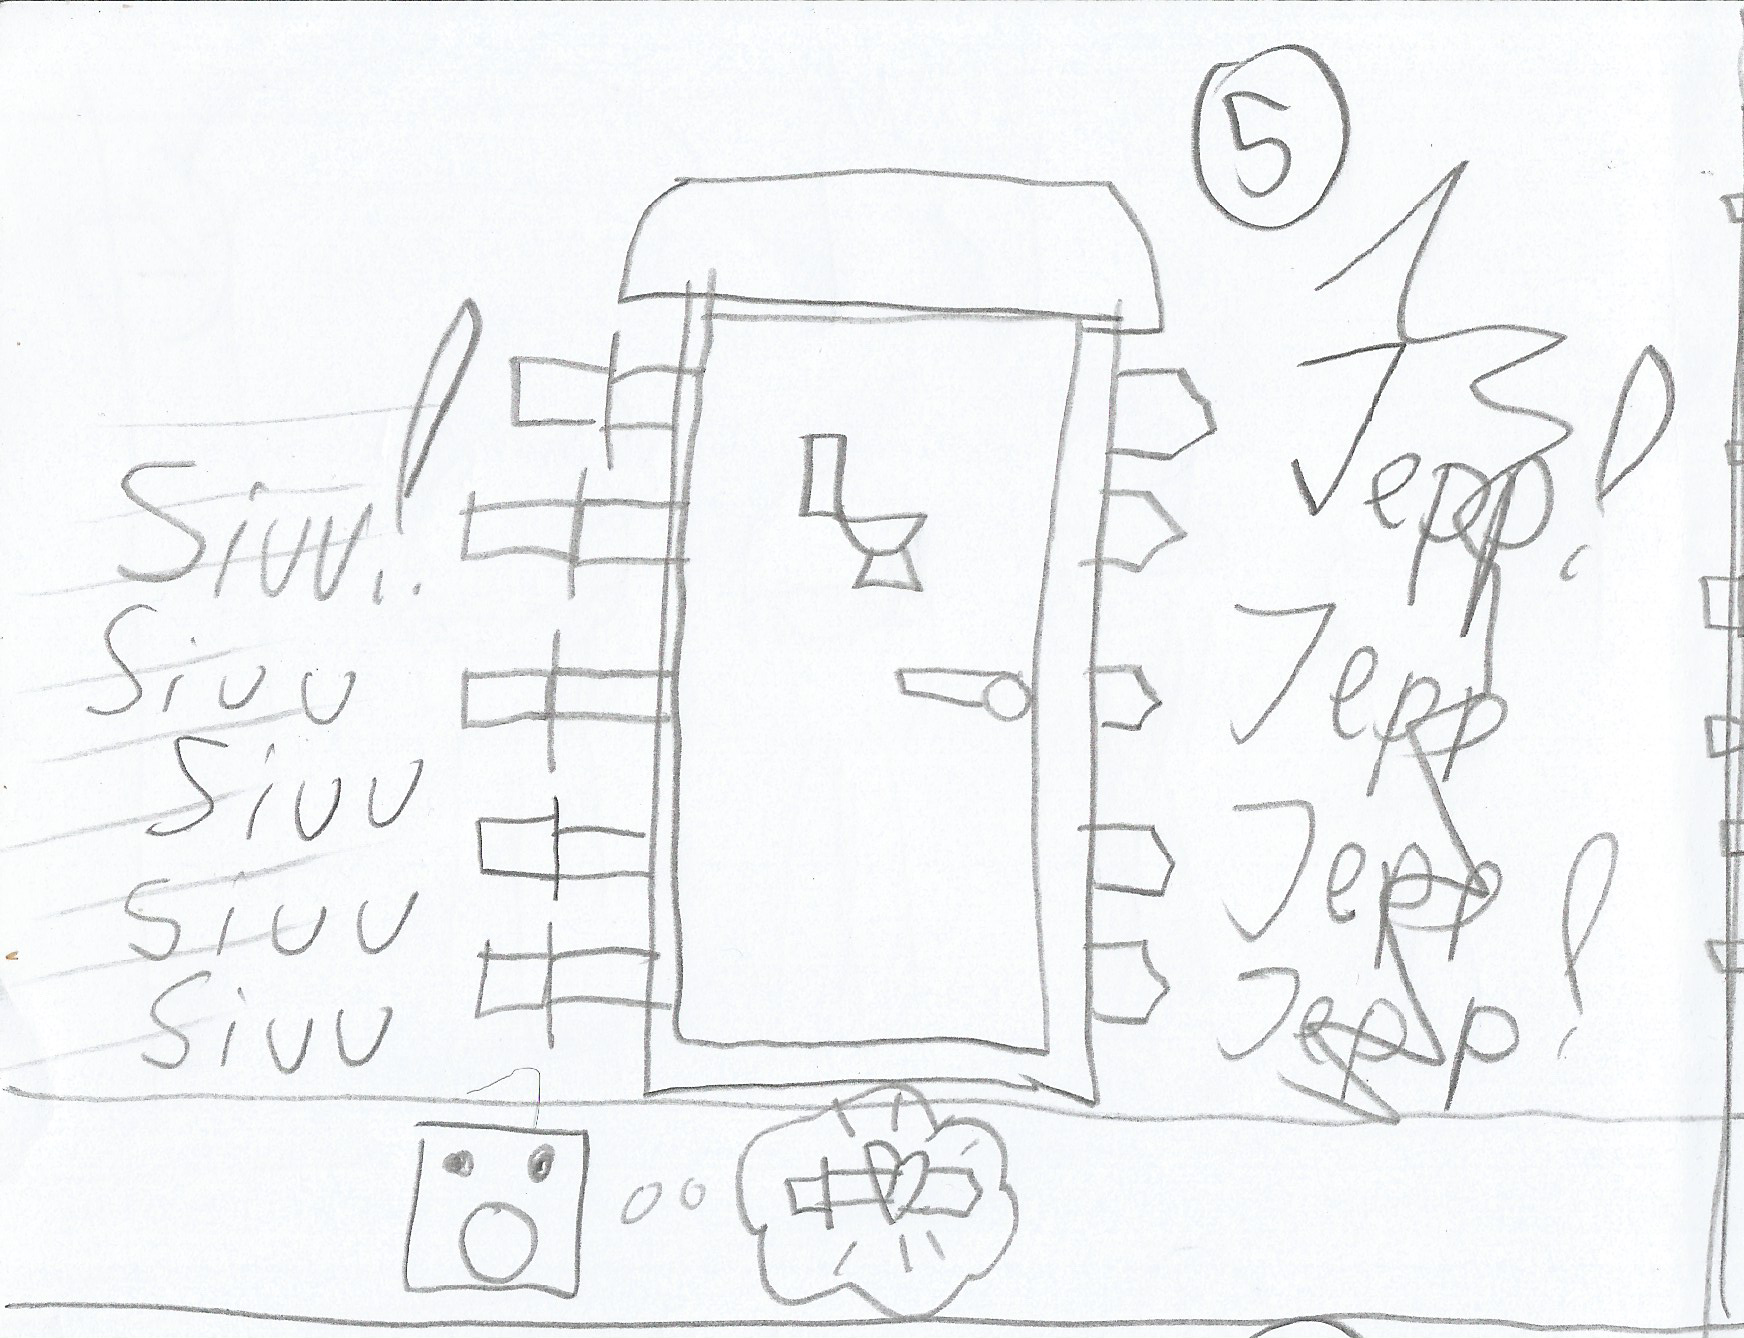 5
Siuu!..
Siuu
Siuu
Siuu
Siuu
Jepp!
Jepp
Jepp
Jepp!